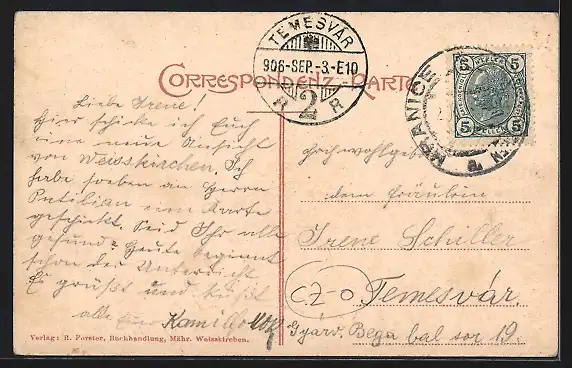 TEMESVÁR
906-SEP.-3.-E10
R 2 R
CORRESPONDENZ-KARTE
5 5
5 5
KRANICE
Liebe Irene!
Hier schicke ich Euch
eine neue Ansicht
von Weisskirchen. Ich
habe soeben an Herrn
eine Karte
geschickt. Seid Ihr alle
gesund? Heute beginnt
schon der Unterricht
Es grüßt und küßt
alle Kamillo
Hochwohlgeboren
dem Fräulein
Irene Schiller
CZ-O Temesvár.
Gyárv. Bega bal sor 19.
Verlag: R. Forster, Buchhandlung, Mähr. Weisskirchen.